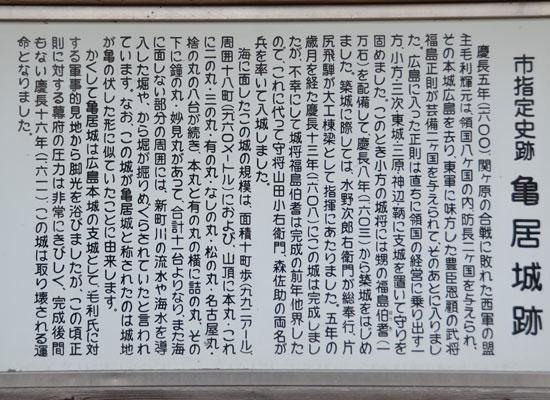 市指定史跡 亀居城跡
慶長五年(一六〇〇)、関ヶ原の合戦に敗れた西軍の盟
主毛利輝元は、領国八ヶ国の内、防長二ヶ国を与えられ、
その本城広島を去り、東軍に味方した豊臣恩顧の武将
福島正則が芸備二ヶ国を与えられて、そのあとに入りまし
た。広島に入った正則は直ちに領国の経営に乗り出す一
方、小方・三次・東城・三原・神辺・鞆に支城を置いて守りを
固めました。このとき小方の城将には甥の福島伯耆(一
万石)を配備して、慶長八年(一六〇三)から築城をはじめ
ました。築城に際しては、水野次郎右衛門が総奉行、片
尻飛騨が大工棟梁として指揮にあたりました。五年の
歳月を経た慶長十三年(一六〇八)にこの城は完成しまし
たが、不幸にして城将福島伯耆は完成の前年他界した
ので、これに代って守将山田小右衛門、森佐助の両名が
兵を率いて入城しました。
海に面したこの城の規模は、面積十町歩(九九二アール)、
周囲十八町(一九六〇メートル)におよび、山頂に本丸・これ
に二の丸・三の丸・有の丸・なしの丸・松の丸・名古屋丸・
捨の丸の八台が続き、本丸と有の丸の横に詰の丸、その
下に鐘の丸、妙見丸があって、合計十一台よりなり、また海
に面しない部分の周囲には、新町川の流水や海水を導
入した堀や、から堀が掘りめぐらされていたと言われ
ています。なお、この城が亀居城と称されたのは城地
が亀の伏した形に似ていたことに由来します。
かくして亀居城は広島本城の支城として、毛利氏に対
する軍事的見地から脚光を浴びましたが、この頃正
則に対する幕府の圧力は非常にきびしく、完成後間
もない慶長十六年(一六一一)、この城は取り壊される運
命となりました。